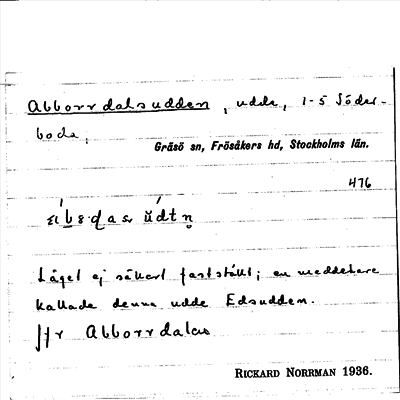 Abborrdalsudden, udde, 1-5 Söder-
boda,
Gräsö sn, Frösåkers hd, Stockholms län.
476
Läget ej säkert fastställt; en meddelare
kallade denna udde Edsudden.
Jfr Abborrdalen
RICKARD NORRMAN 1936.